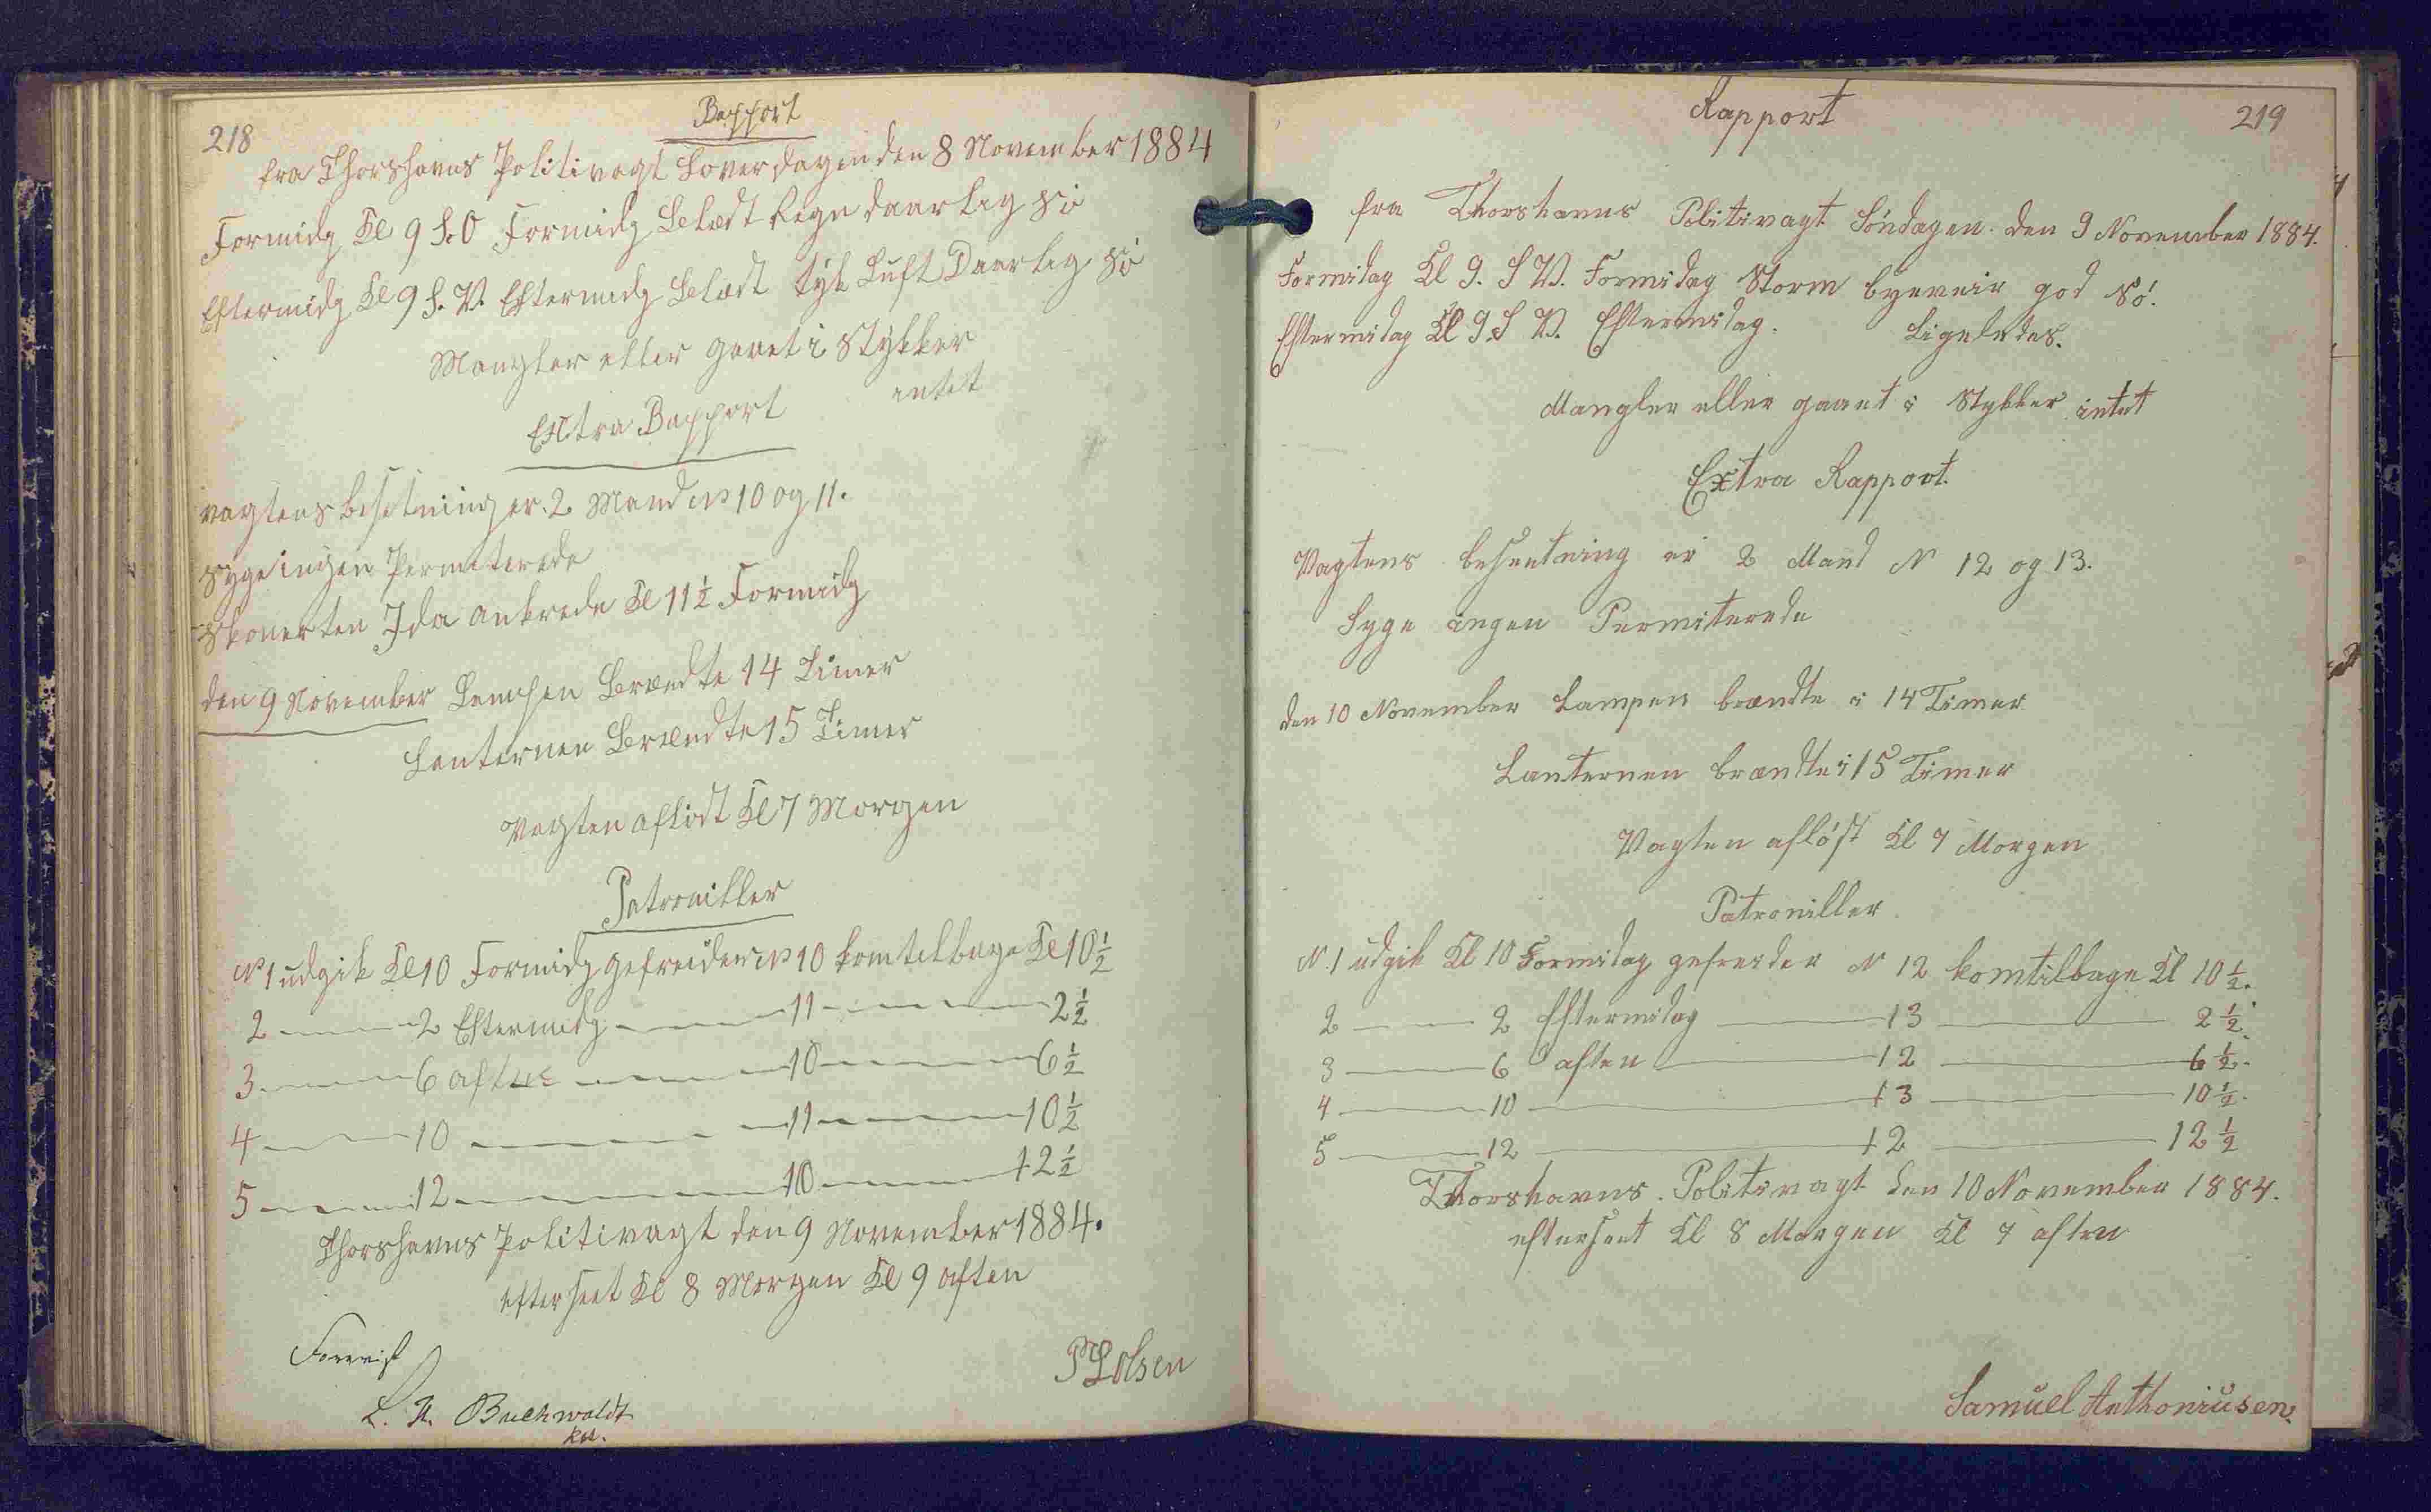 218
Rapport
fra Thorshavns Politivagt Löverdagen den 8 November 1884
Formidg Kl 9 S.O Formidg Blæst Regn daarlig Sö
Eftermidg Kl 9 S.V. Eftermidg Blæst tyk Luft Daarlig Sö
Mangler eller gaaet i Stykker
intet
Extra Rapport
Vagtens besetning er 2 Mand No 10 og 11.
Syge ingen Permiterede
Skonerten Ida ankrede Kl 11½ Formidg
den 9 November Lampen Brændte 14 Timer
Lanternen Brændte 15 Timer
Vagten aflöst Kl 7 Morgen
Patrouiller
No 1 udgik Kl 10 Formidg gefreider No 10 kom tilbage Kl 10½
2 — 2 Eftermidg — 11 — 2½
3 — 6 aften — 10 — 6½
4 — 10 — 11 — 10½
5 — 12 — 10 — 12½
Thorshavns Politivagt den 9 November 1884.
efterseet Kl 8 Morgen Kl 9 aften
Forevist
Buchwaldt
Olsen
Rapport
219
fra Thorshavns Politivagt Söndagen den 9 November 1884.
Formidag Kl 9. S V. Formidag Storm byeveir god Sö.
Eftermidag Kl 9 S V. Eftermidag. Ligeledes.
Mangler eller gaaet i Stykker intet
Extra Rapport.
Vagtens besætning er 2 Mand N 12 og 13.
Syge ingen Permiterede
den 10 November Lampen brændte i 14 Timer
Lanternen brændte i 15 Timer
Vagten aflöst Kl 7 Morgen
Patroniller
N. 1 udgik Kl 10 Formidag gefreider N 12 kom tilbage Kl 10½.
2 — 2 Eftermidag — 13 — 2½.
3 — 6 aften — 12 — 6½.
4 — 10 — 13 — 10½.
5 — 12 — 12 — 12½
Thorshavns. Politivagt den 10 November 1884.
efterseet Kl 8 Morgen Kl 7 aften
Samuel Anthoniusen.